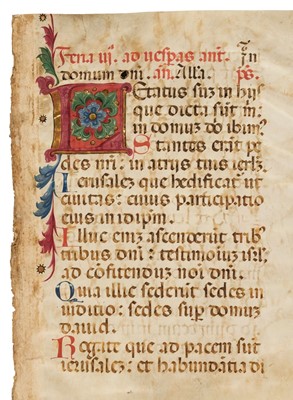 Feria iij. ad vesperas ant. In
domum dni. añ. Alla. ps.
Letatus suz in hys
que dicta sūt m̄:
in domuz dn̄i ibim9
Stantes erāt pe
des nr̄i: in atrijs tuis ierl̄z.
Ierusalez que hedificat̄ ut
ciuitas: cuius participatio
eius in idip̄m.
Illuc enim ascenderūt trib9
tribus dn̄i: testimoniuz isrl̄.
ad cōfitenduz noī dn̄i.
Quia illic sederūt sedes in
iuditio: sedes sup̄ domuz
dauid.
Rogate que ad pacem sūt
ierusalez: et habundātia di